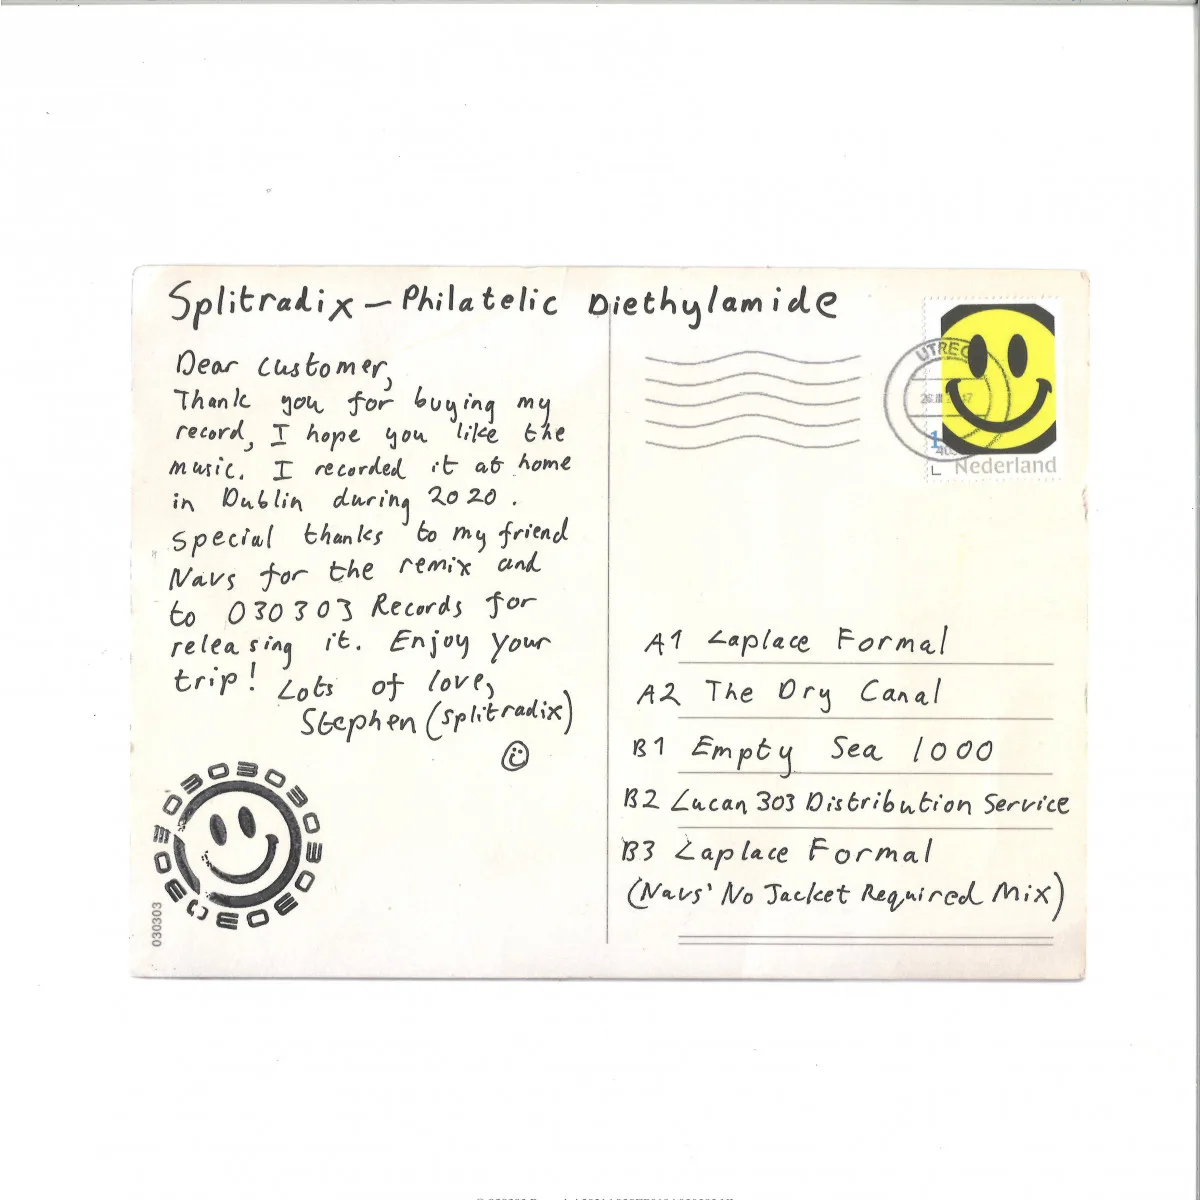 Splitradix – Philatelic Diethylamide
Dear customer,
Thank you for buying my
record, I hope you like the
music. I recorded it at home
in Dublin during 2020.
Special thanks to my friend
Navs for the remix and
to 030303 Records for
releasing it. Enjoy your
trip! Lots of love,
Stephen (Splitradix)
030303030303030303
030303
UTREC
Nederland
A1 Laplace Formal
A2 The Dry Canal
B1 Empty Sea 1000
B2 Lucan 303 Distribution Service
B3 Laplace Formal
(Navs' No Jacket Required Mix)